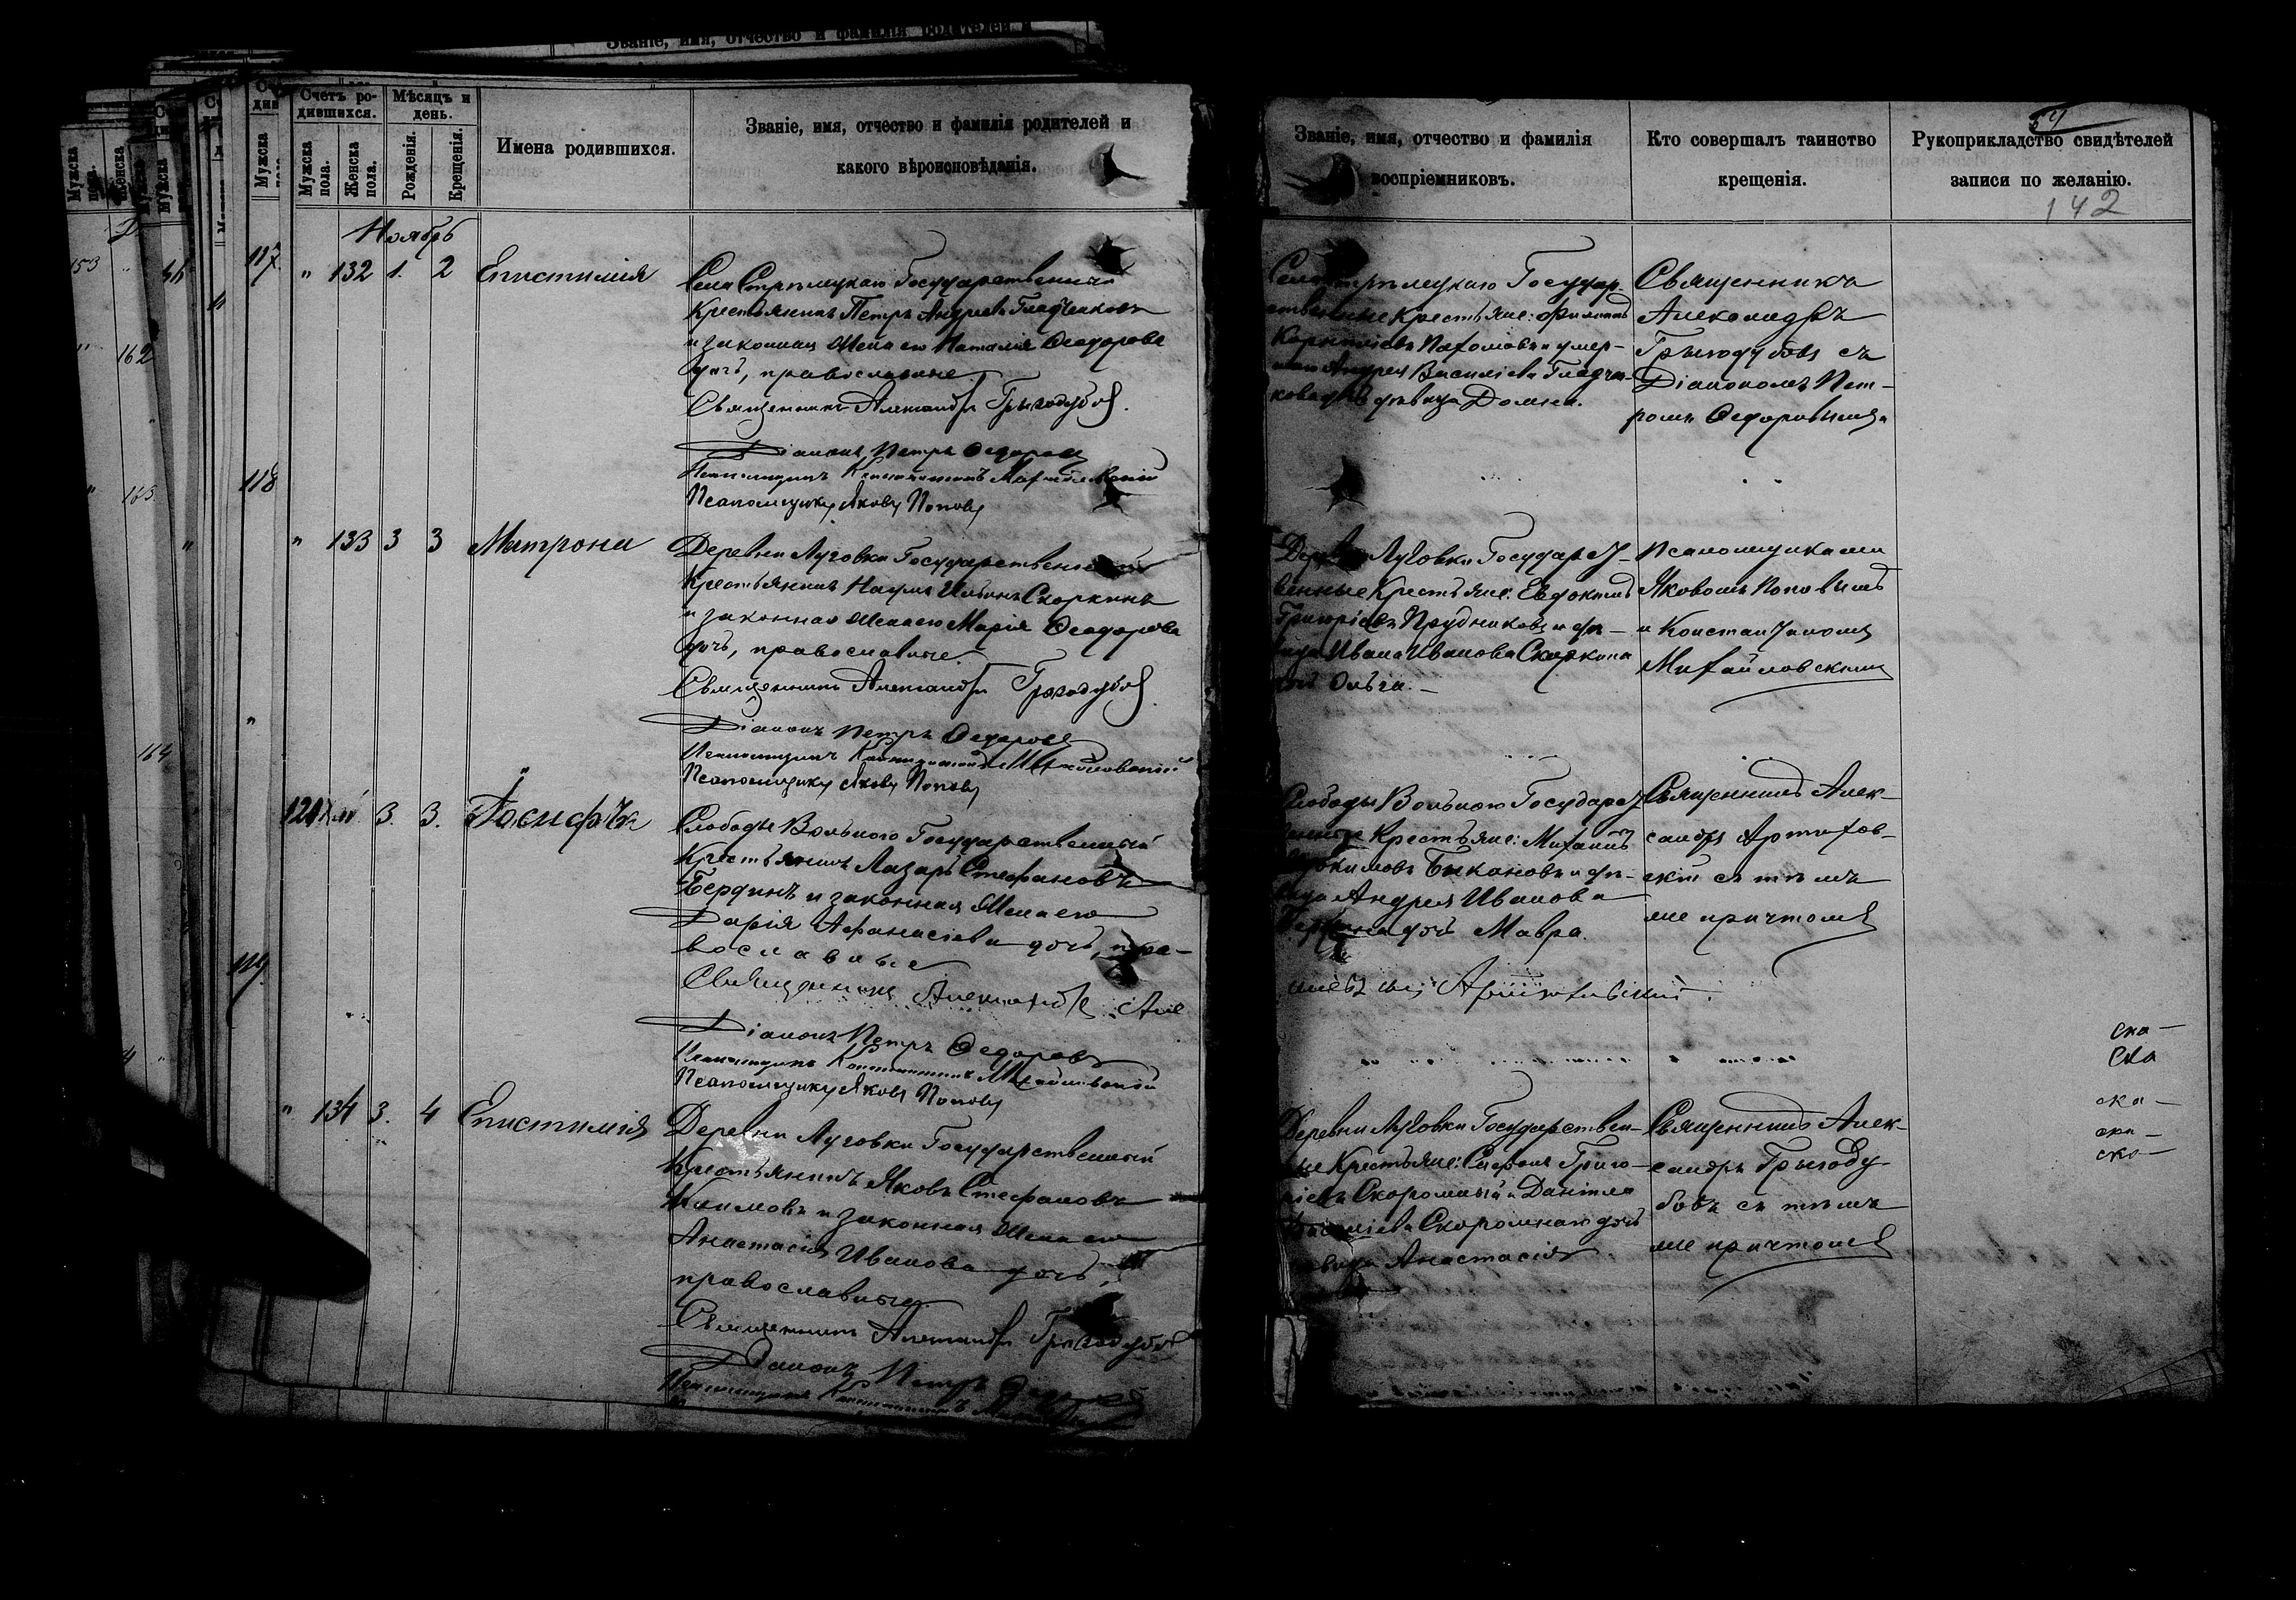 Званіе, имя, отчество и фамилія родителей и
Счетъ ро-
дившихся.
Мѣсяцъ и
день.
Мужска
пола.
Женска
пола.
Рожденія.
Крещенія.
Имена родившихся.
Званіе, имя, отчество и фамилія родителей и
какого вѣроисповѣданія.
Ноябрь
" 132 1. 2 Епистимія
Села Стрѣлецкаго Государственный
Крестьянинъ Петръ Андреевъ
и законная жена его Наталія Ѳеодорова
дочь, православные.
Священникъ Александръ Грызодубовъ
Діаконъ Петръ Ѳедоровъ
Псаломщикъ Константинъ Михайловскій
Псаломщикъ Яковъ Поповъ
" 133 3 3 Матрона
Деревни Луговки Государственный
Крестьянинъ Наумъ Ильинъ Скоркинъ
и законная жена его Марія Ѳеодорова
дочь, православные.
Священникъ Александръ Грызодубовъ
Діаконъ Петръ Ѳедоровъ
Псаломщикъ Константинъ Михайловскій
Псаломщикъ Яковъ Поповъ
121 3. 3. Іосифъ
Слободы Вольного Государственный
Крестьянинъ Лазарь Стефановъ
Бердинъ и законная жена его
Дарія Афанасіева дочь, пра-
вославные
Священникъ Александръ
Діаконъ Петръ Ѳедоровъ
Псаломщикъ Константинъ Михайловскій
Псаломщикъ Яковъ Поповъ
" 134 3. 4 Епистимія
Деревни Луговки Государственный
Крестьянинъ Яковъ Стефановъ
Климовъ и законная жена его
Анастасія Иванова дочь,
православные.
Священникъ Александръ Грызодубовъ
Діаконъ Петръ Ѳедоровъ
Псаломщикъ Константинъ
117
118
119
153
162
163
164
54
Званіе, имя, отчество и фамилія
воспріемниковъ.
Кто совершалъ таинство
крещенія.
Рукоприкладство свидѣтелей
записи по желанію.
142
Села Стрѣлецкаго Государ-
ственные Крестьяне: Филиппъ
Корниліевъ Пахомовъ и умер-
шаго Андрея Василіева
дочь дѣвица Домна.
Священникъ
Александръ
Грызодубовъ съ
Діакономъ Пет-
ромъ Ѳедоровымъ
Деревни Луговки Государст-
венные Крестьяне: Евдокимъ
Григоріевъ Прудниковъ и дѣ-
вица Ивана Иванова Скоркина
дочь Ольга. —
Псаломщиками
Яковомъ Поповымъ
и Константиномъ
Михайловскимъ
Слободы Вольного Государст-
венные Крестьяне: Михаилъ
Евдокимовъ Бикановъ и дѣ-
вица Андрея Иванова
дочь Мавра.
Священникъ Алек-
сандръ
съ тѣмъ
же причтомъ
Деревни Луговки Государствен-
ные Крестьяне: Стефанъ Григо-
ріевъ Скоромный и Даніила
Василіева Скоромнаго дочь
дѣвица Анастасія
Священникъ Алек-
сандръ Грызоду-
бовъ съ тѣмъ
же причтомъ
ска —
ска
ска —
ска —
ска —